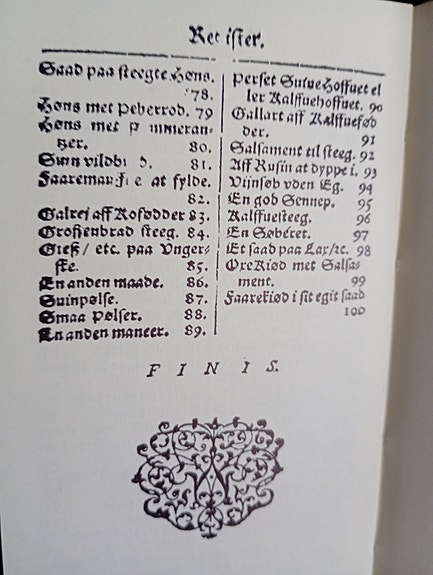 Register.
Saad paa steegte Høns.
78.
Høns met Peberrod. 79
Høns met Pommeran-
tzer. 80.
Suin vildbrad. 81.
Faaremaufue at fylde.
82.
Galrei aff Kofødder 83.
Grossenbrad steeg. 84.
Gieß/ etc. paa Unger-
ske. 85.
En anden maade. 86.
Suinpølse. 87.
Smaa Pølser. 88.
En anden maneer. 89.
Perset Suinehoffuet el
ler Kalffuehoffuet. 90
Gallart aff Kalffuefød
der. 91
Salsament til steeg. 92
Aff Rusin at dyppe i. 93
Vijnsøb vden Eg. 94
En god Sennep. 95
Kalffuesteeg. 96
En Søberet. 97
Et saad paa Lax/ꝛc. 98
OxeKiød met Salsa-
ment. 99
Faarekiød i sit egit saad
100
FINIS.